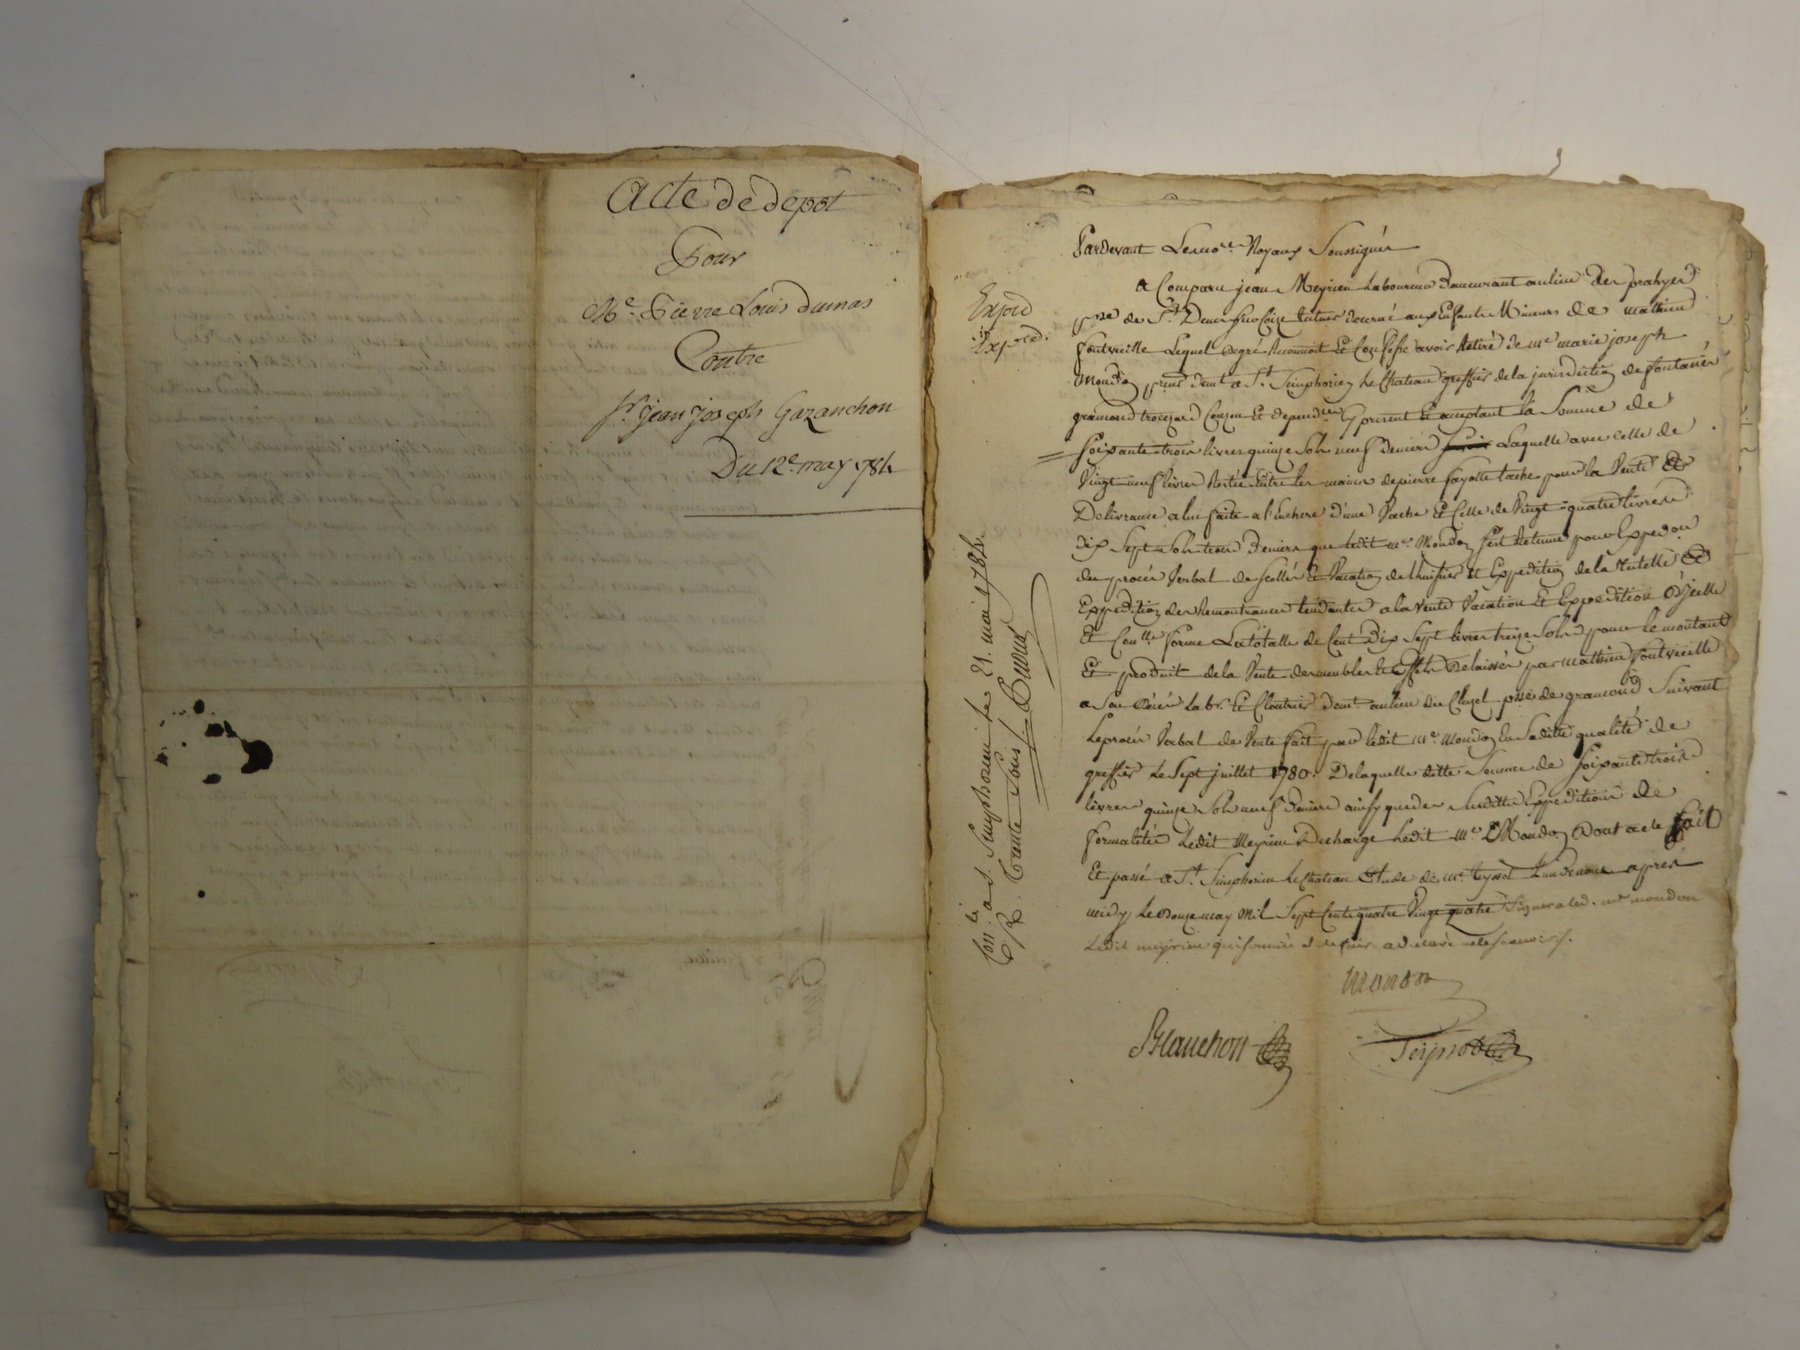 Acte de depot
Pour
Me. Pierre Louis dumas
Contre
Sr. jean joseph Garanchon
Du 12e. may 1784
Expéd
Expced.
Con.lé a s. Simphorien le 21. mai 1784.
R. trente sous
Pardevant Les no.res Royaux Soussignés
a Comparu jean Meyrieu Laboureur demeurant au lieu des
p.sse de St. Denis tuteur décerné aux Enfants Mineurs de mathieu
fontvieille Lequel de gré Reconnoit Et Confesse avoir Retiré de me marie joseph
Mondon demt. a St. Simphorien le Chateau greffier de la jurisdiction de fontanès
gramond Et dépend.ces y present Et aceptant la Somme de
soixante trois livres quinze Sols neuf deniers Laquelle avec celle de
Vingt neuf livres Restée Entre les mains de pierre fayolle pour la Vente &
Délivrance a lui faite a l'Enchere d'une Vache Et Celle de Vingt quatre livres
dix Sept Sols trois deniers que ledit me. Mondon s'est Retenue pour Exped.on
du procès Verbal de scellés Et Vacation de l'huissier Et Expedition de la tutelle &
Expedition des Remontrances tendantes a la Vente Vacation Et Expedition d'jcelle
Et Con.lle forme La totalle de Cent dix Sept livres treize Sols pour le montant
Et produit de la Vente des meubles & Effets délaissés par mathieu fontvieille
a Son décés Lab.r Et Cloutier demt. au lieu du Cluzel p.sse de gramond Suivant
Le procès Verbal de Vente fait par ledit me. Mondon En Sadite qualité de
greffier le Sept juillet 1780. De laquelle ditte Somme de soixante trois
livres quinze Sols neuf deniers ainsy que des Susdittes Expeditions de
formalités Ledit Meyrieu décharge Ledit me Mondon Dont acte fait
Et passé a St. Simphorien le Chateau Etude de me. teyssot L'un de nous après
midy le Douze may Mil Sept Cent quatre Vingt quatre Signera led. me mondon
Ledit meyrieu qui sommé de faire a declaré ne le scavoir./.
Mondon
Blanchon
Teyssot